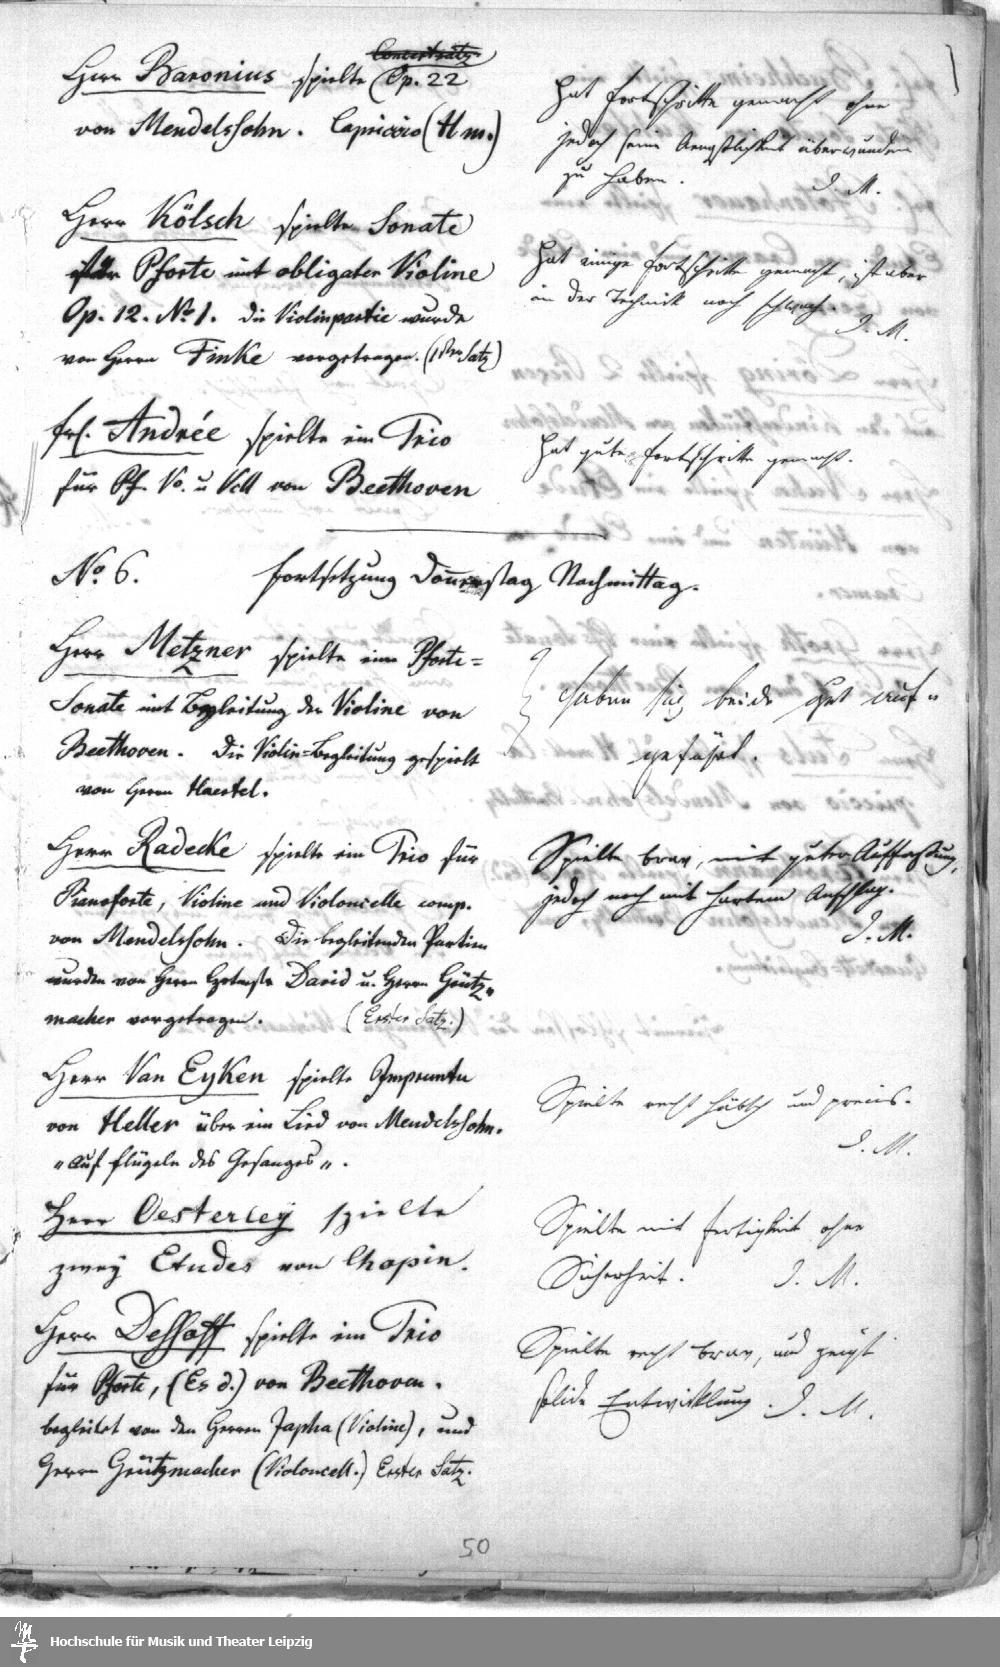 Concertsatz
Herr Baronius spielte (Op. 22
von Mendelssohn. Capriccio (H m.)
Hat Fortschritte gemacht ohne
jedoch seine Aengstlichkeit überwunden
zu haben. I. M.
Herr Kölsch spielte Sonate
für Pforte mit obligater Violine
Op. 12. No 1. die Violinpartie wurde
von Herrn Finke vorgetragen. (1ster Satz)
Hat einige Fortschritte gemacht, ist aber
in der Technik noch schwach.
I. M.
Frl. Andrée spielte ein Trio
für Pf. Vo. u Vcll von Beethoven
Hat gute Fortschritte gemacht.
No. 6. Fortsetzung Donnerstag Nachmittag.
Herr Metzner spielte eine Pforte=
Sonate mit Begleitung der Violine von
Beethoven. Die Violin=Begleitung gespielt
von Herrn Haertel.
Haben sich beide gut auf=
geführt.
Herr Radecke spielte ein Trio für
Pianoforte, Violine und Violoncelle comp.
von Mendelssohn. Die begleitenden Partien
wurden von Herrn Cctmstr David u. Herrn Grütz=
macher vorgetragen. (Erster Satz.)
Spielte brav, mit guter Auffassung,
jedoch noch mit hartem Anschlag.
I. M.
Herr Van Eyken spielte Impromtu
von Heller über ein Lied von Mendelssohn.
"Auf Flügeln des Gesanges".
Spielte recht hübsch und precis.
I. M.
Herr Oesterley spielte
zwey Etudes von Chopin.
Spielte mit Fertigkeit ohne
Sicherheit. I. M.
Herr Dessoff spielte ein Trio
für Pforte, (Es d.) von Beethoven.
begleitet von den Herren Japha (Violine), und
Herrn Grützmacher (Violoncell.) Erster Satz.
Spielte recht brav, und zeigt
solide Entwicklung. I. M.
50
Hochschule für Musik und Theater Leipzig